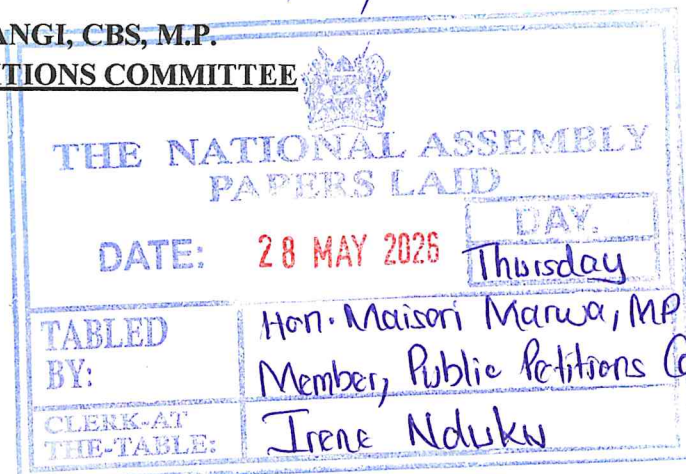 ANGI, CBS, M.P.
ITIONS COMMITTEE
THE NATIONAL ASSEMBLY
PAPERS LAID
DATE: 28 MAY 2026
DAY.
Thursday
TABLED BY:
Hon. Maisori Marwa, MP
Member, Public Petitions Co
CLERK-AT THE-TABLE:
Irene Nduku